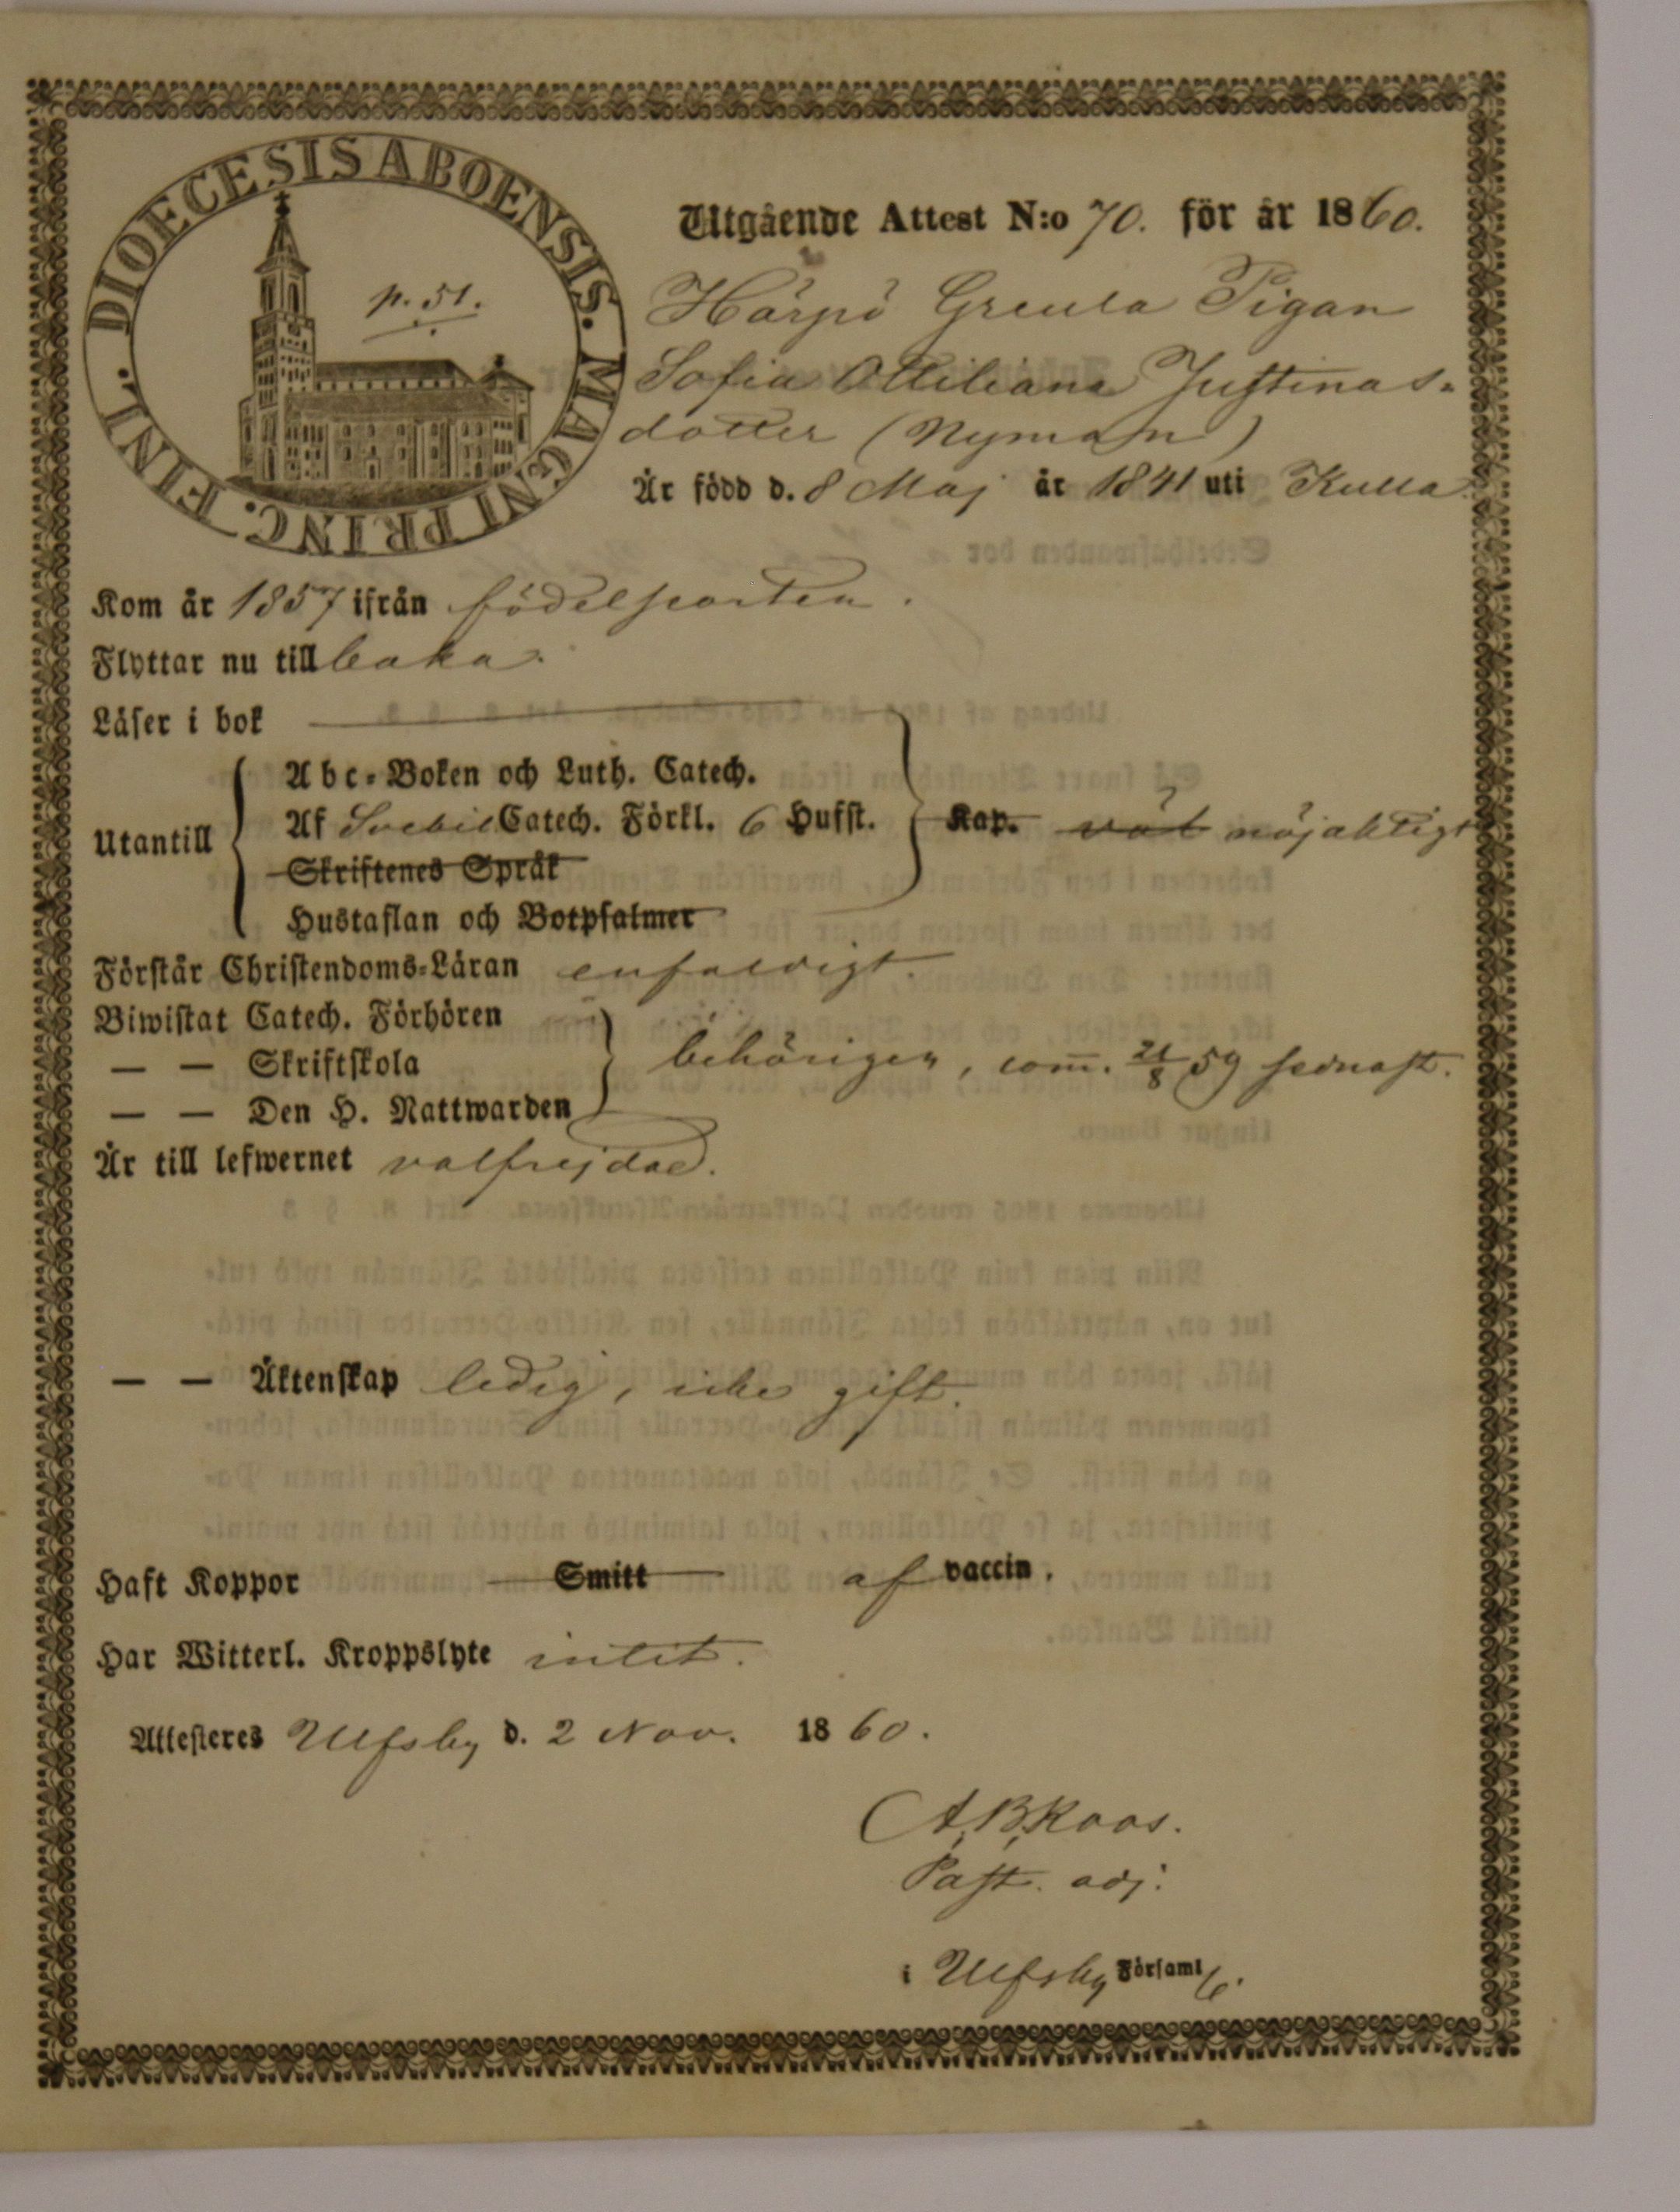 DIOECESIS ABOENSIS. MAGNI PRINC. FINL.
p. 51.
Utgående Attest N:o 70. för år 1860.
Härpö Greula Pigan
Sofia Ottiliana Justinas-
dotter (Nyman)
Är född d. 8 Maj år 1841 uti Kulla
Kom år 1857 ifrån födelseorten.
Flyttar nu tillbaka.
Läser i bok
Abc-Boken och Luth. Catech.
Utantill
Af Svebil Catech. Förkl. 6 Hufst.
Kap. väl nöjaktigt
Skriftenes Språk
Hustaflan och Botpsalmer
Förstår Christendoms-Läran enfaldigt.
Biwistat Catech. Förhören
— — Skriftskola
behörigen, com̅. 21/8 59 sednast.
— — Den H. Nattwarden
Är till lefwernet välfrejdad.
— — Äktenskap ledig, icke gift.
Haft Koppor Smitt af vaccin.
Har Witterl. Kroppslyte intet.
Attesteres Ulfsby d. 2 Nov. 1860.
A. B. Roos.
Past. adj:
i Ulfsby Församl